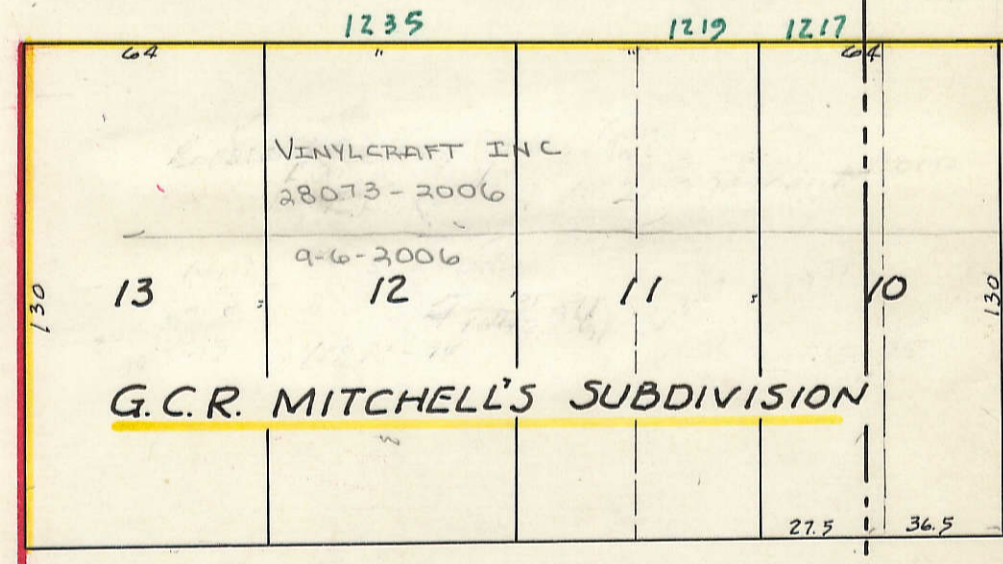 1235 1219 1217
64 " " 64
VINYLCRAFT INC
28073-2006
9-6-2006
130 13 " 12 " 11 " 10 130
G.C.R. MITCHELL'S SUBDIVISION
27.5 36.5